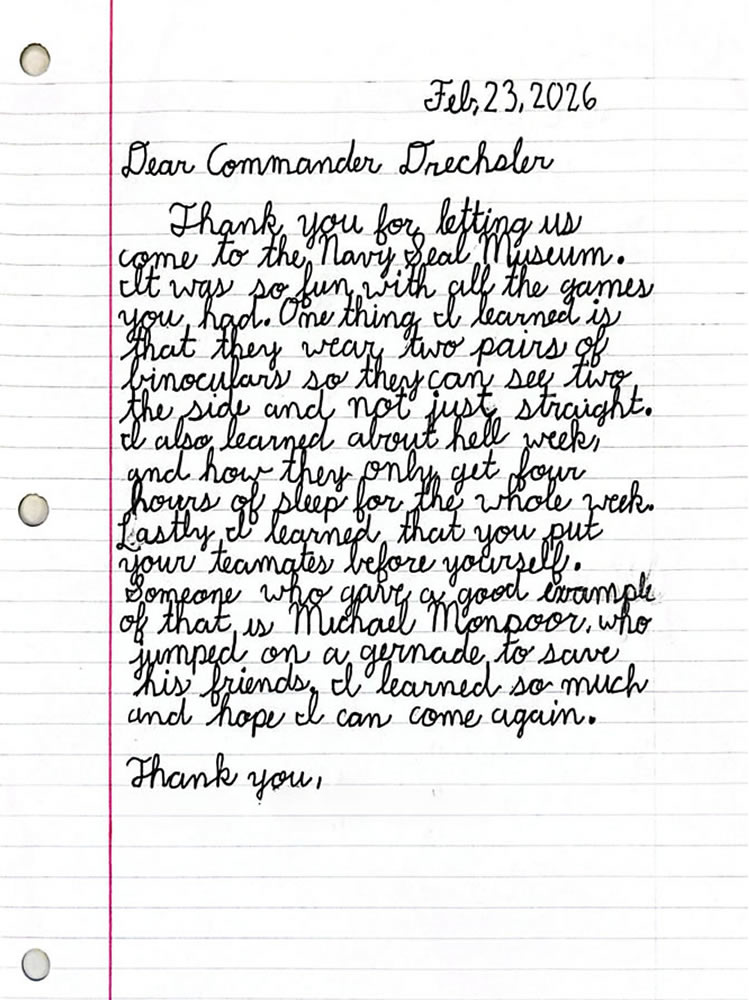 Feb, 23, 2026
Dear Commander Drechsler
Thank you for letting us
come to the Navy Seal Museum.
It was so fun with all the games
you had. One thing I learned is
that they wear two pairs of
binoculars so they can see two
the side and not just straight.
I also learned about hell week,
and how they only get four
hours of sleep for the whole week.
Lastly I learned that you put
your teamates before yourself.
Someone who gave a good example
of that is Michael Monpoor, who
jumped on a gernade to save
his friends. I learned so much
and hope I can come again.
Thank you,